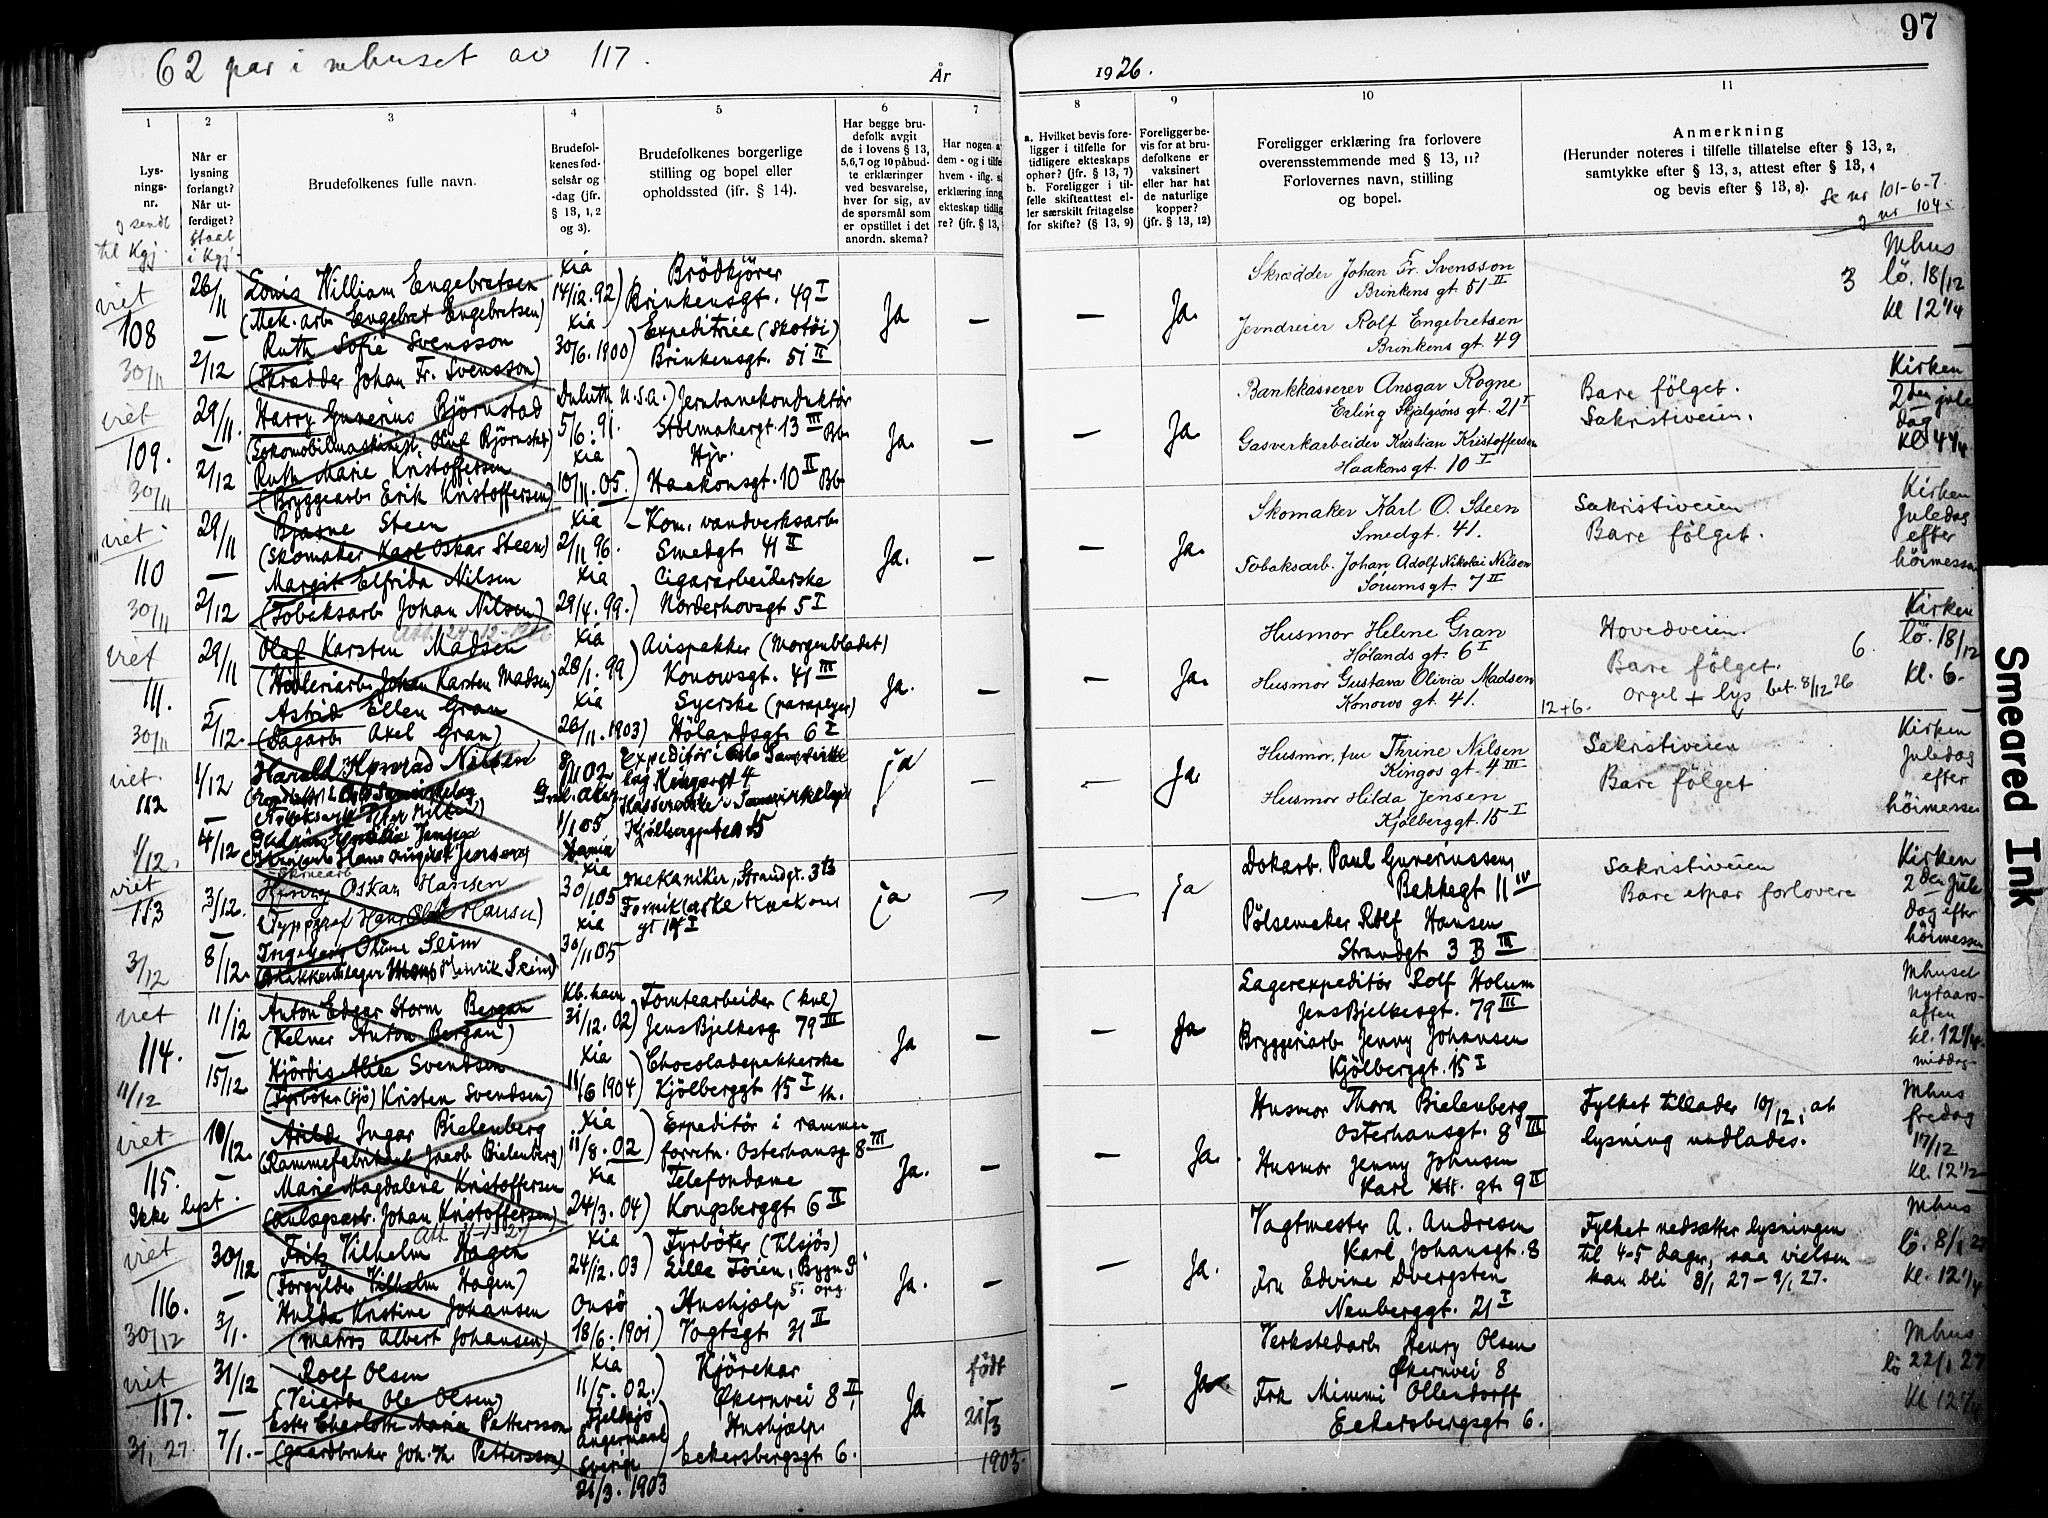 62 par i mhuset av 117.
År
1926.
97
1
Lys-
nings-
nr.
og sendt
til Kgj.
2
Når er
lysning
forlangt?
Når ut-
ferdiget?
Staat
i Kgj.
3
Brudefolkenes fulle navn.
4
Brudefol-
kenes fød-
selsår og
-dag (jfr.
§ 13, 1, 2
og 3).
5
Brudefolkenes borgerlige
stilling og bopel eller
opholdssted (jfr. § 14).
6
Har begge bru-
defolk avgit
de i lovens § 13,
5, 6, 7 og 10 påbud-
te erklæringer
ved besvarelse,
hver for sig, av
de spørsmål som
er opstillet i det
anordn. skema?
7
Har nogen a
dem - og i tilfe
hvem - iflg. si
erklæring inng
ekteskap tidlig
re? (jfr. § 13,
8
a. Hvilket bevis fore-
ligger i tilfelle for
tidligere ekteskaps
ophør? (jfr. § 13, 7)
b. Foreligger i til-
felle skifteattest el-
ler særskilt fritagelse
for skifte? (§ 13, 9)
9
Foreligger be-
vis for at bru-
defolkene er
vaksinert
eller har hat
de naturlige
kopper?
(jfr. § 13, 12)
10
Foreligger erklæring fra forlovere
overensstemmende med § 13, 11?
Forlovernes navn, stilling
og bopel.
11
Anmerkning
(Herunder noteres i tilfelle tillatelse efter § 13, 2,
samtykke efter § 13, 3, attest efter § 13, 4
og bevis efter § 13, 8).
Se nr 101-6-7.
og nr 104.
viet
108
30/11
26/11
—
2/12
Louis William Engebretsen
(Mek. arb. Engebret Engebretsen)
Ruth Sofie Svensson
(Skrædder Johan Fr. Svensson)
Xia
14/12.92)
Xia
30/6.1900)
Brödkjörer
Brinkensgt. 49 I
Expeditrice (skotöi)
Brinkensgt. 51 II
Ja
—
—
Ja.
Skrædder Johan Fr. Svensson
Brinkens gt. 51 II
Jerndreier Rolf Engebretsen
Brinkens gt. 49
3
Mhus
lö. 18/12
Kl 12 1/4
viet
109.
30/11
29/11.
—
2/12
Harry Guverius Björnstad
(Lokomobilmaskinist Oluf Björnstad)
Ruth Marie Kristoffersen
(Bryggearb. Erik Kristoffersen)
Duluth U.S.A.)
5/6.91.
Xia
10/11.05.
Jernbanekonduktör
Stolmakergt. 13 III Bb.
Hjv.
Haakonsgt. 10 II Bb.
Ja.
—
—
Ja
Bankkasserer Ansgar Rogne
Erling Skjalgsöns gt. 21 I
Gasverkarbeider Kristian Kristoffersen
Haakons gt. 10 I
Bare fölget.
Sakristiveien.
Kirken
2den jule
dag
Kl 4 1/4
viet
110
30/11
29/11
—
2/12
Bjarne Steen
(Skomaker Karl Oskar Steen)
Margit Elfrida Nilsen
(Tobaksarb. Johan Nilsen)
Xia
2/11 96.
Xia
29/4.99.)
Kom. vandverksarb.
Smedgt. 41 II
Cigararbeiderske
Norderhovsgt. 5 I
Ja.
—
—
Ja.
Skomaker Karl O. Steen
Smedgt. 41.
Tobaksarb. Johan Adolf Nikolai Nilsen
Sörumsgt. 7 II
Sakristiveien
Bare fölget.
Kirken
Juledag
efter
höimessen
viet
111.
30/11
29/11
—
2/12.
Olaf Karsten Madsen
(Höleriarb. Johan Karsten Madsen)
Astrid Ellen Gran
(Dagarb. Axel Gran)
Xia
28/1.99)
Xia
26/11.1903)
Avispakker (Morgenbladet)
Konowsgt. 41 III
Syerske (paraplyer)
Hölandsgt. 6 I
Ja.
—
—
Ja.
Husmor Helene Gran
Hölands gt. 6 I
Husmor Gustava Olivia Madsen
Konows gt. 41.
12+6.
Hovedveien.
Bare fölget.
Orgel + lys bet. 8/12 26
6.
Kirken
lö. 18/12
Kl. 6.
viet.
112
1/12.
1/12
4/12
Harald Konrad Nilsen
8/1 02
1/1 05
Kjölberggaten 15
ja
—
—
Ja.
Husmor, fru Thrine Nilsen
Kingos gt. 4 III
Husmor Hilda Jensen
Kjölberggt. 15 I
Sakristiveien
Bare fölget
Kirken
Juledag
efter
höimessen
viet
113
3/12
3/12.
8/12.
Henry Oskar Hansen
(Typograf Hans Olaf Hansen)
Ingeborg Otine Seim
Xia
30/1 05
Xia
30/11 05
mekaniker, Strandgt. 3 B
ja
—
—
ja
Dokarb. Paul Guveriussen
Bakkegt 11 IV
Pölsemaker Rolf Hansen
Strandgt 3 B III
Sakristiveien
Bare etpar forlovere
Kirken
2den Jule
dag efter
höimessen
viet
114.
11/12
11/12
—
15/12
Anton Edgar Storm Bergan
(Kelner Anton Bergan)
Hjördis Alice Svendsen
(Fyrböter (sjö) Kristen Svendsen)
Kb.havn
31/12.02)
Xia
11/6 1904)
Tomtearbeider (kul)
Jens Bjelkesg. 79 III
Chocoladepakkerske
Kjölberggt 15 I th.
Ja
—
—
Ja
Lagerexpeditör Rolf Holum
Jens Bjelkesgt. 79 III
Bryggeriarb. Jenny Johansen
Kjölberggt. 15 I
Mhuset
nytaars-
aften
kl. 12 1/4
middag
viet
115.
Ikke lyst.
10/12.
—
Arild Ingar Bielenberg
(Rammefabrikant Jacob Bielenberg)
Marie Magdalena Kristoffersen
(Anlægsarb. Johan Kristoffersen)
Xia
11/8.02)
Xia
24/3.04)
Expeditör i ramme
forretn. Osterhausg. 8 III
Telefondame
Kongsberggt 6 II
Ja.
—
—
Ja.
Husmor Thora Bielenberg
Osterhausgt. 8 III
Husmor Jenny Johnsen
Karl XII. gt. 9 II
Fylket tillader 10/12, at
lysning undlades.
Mhus
fredag
17/12
Kl. 12 1/2
viet
116.
30/12
30/12
—
3/1.
Fritz Vilhelm Hagen
(Forgylder Vilhelm Hagen)
Hulda Kristine Johansen
(Matros Albert Johansen)
Xia
24/12.03)
Onsö
18/6.1901)
Fyrböter (tilsjös)
Lille Töien, Bygn 9
5. opg
Hushjælp
Vogtsgt 31 II
Ja.
—
—
Ja.
Vagtmester A. Andresen
Karl Johansgt. 8
Fru Edvine Dvergsten
Neuberggt. 21 I
Fylket nedsætter lysningen
til 4-5 dager, saa vielsen
kan bli 8/1 27 - 9/1 27.
Mhus
lö. 8/1 27
Kl. 12 1/4
viet
117.
3/1 27
31/12
—
7/1.-
Rolf Olsen
(Veiarb. Ole Olsen)
Ester Charlotte Maria Pettersson
(gaardbruker Joh. Th. Pettersson)
Xia
11/5.02.)
Fjellsjö
Angermanl
Sverige
21/3.1903
Kjörekar
Økernvei 8 II,
Hushjælp
Eckersbergsgt 6.
Ja
født
21/3
1903.
—
Ja
Verkstedarb. Henry Olsen
Økernvei 8
Frk Mimmi Ollendorff
Eckersbergsgt. 6.
Mhus
lö 22/1 27
Kl 12 1/4
Smeared Ink